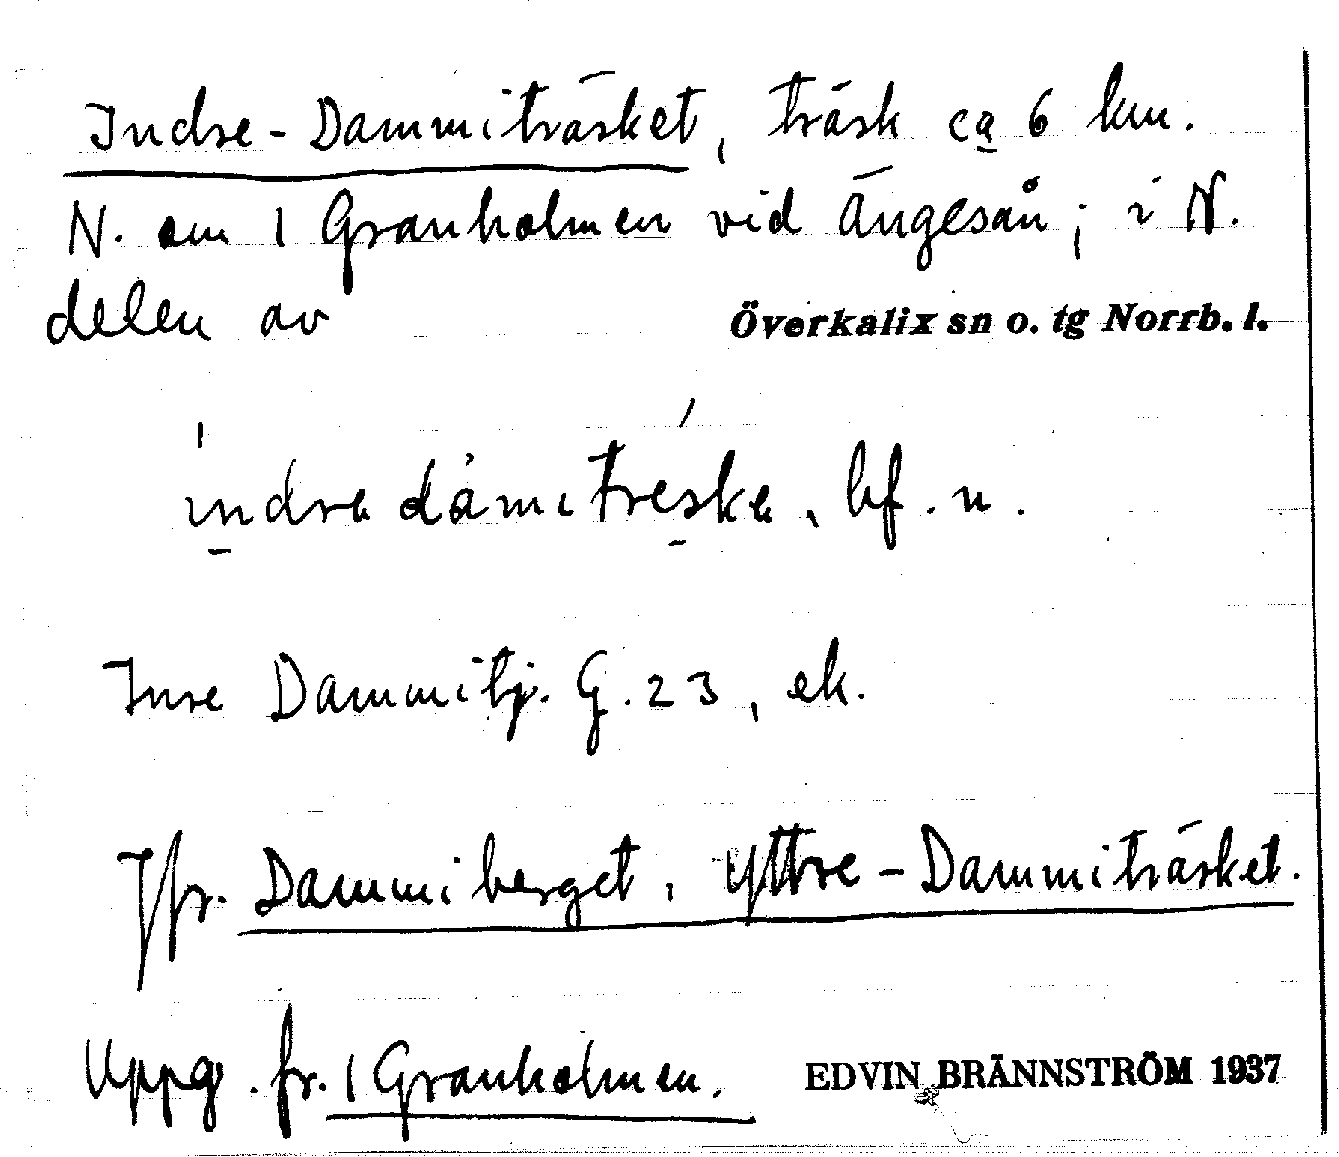 Indre-Dammiträsket, träsk ca 6 km.
N. om 1 Granholmen vid Ängesån; i N.
delen av Överkalix sn o. tg Norrb. l.
ìndra dàmitréska, bf. n.
Inre Dammitj. G. 23, ek.
Jfr. Dammiberget, Yttre-Dammiträsket.
Uppg. fr. 1 Granholmen. EDVIN BRÄNNSTRÖM 1937